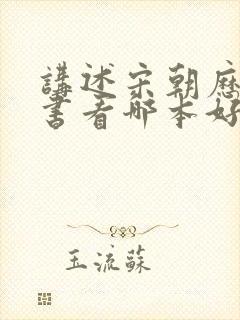 講述宋朝歷
書看哪本好
玉流蘇